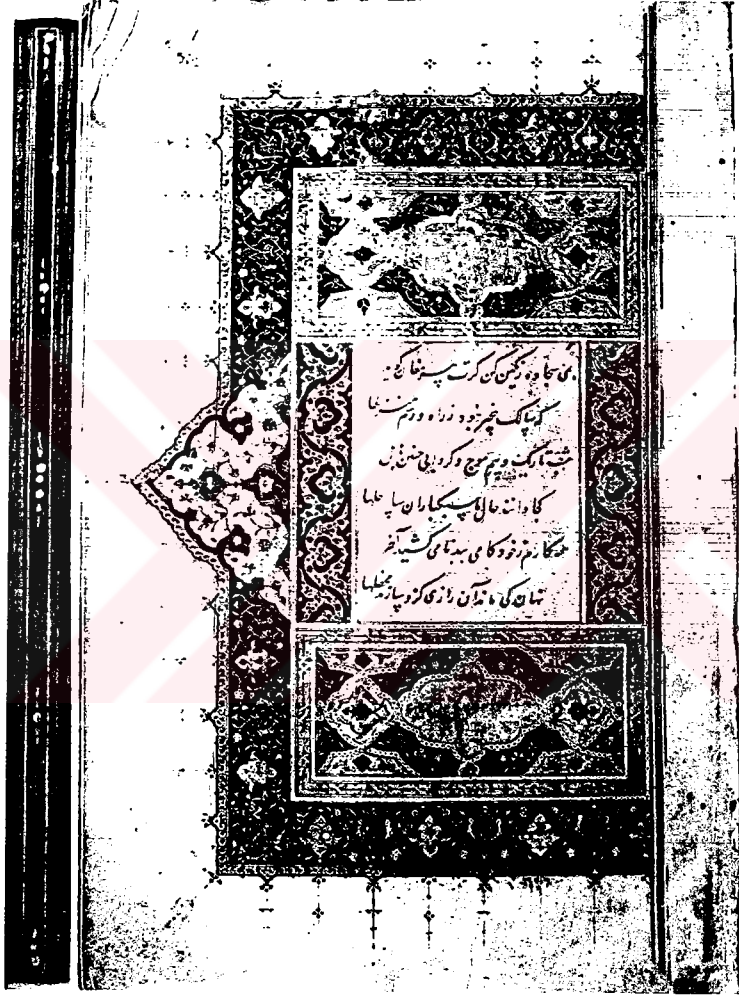 بمی سجاده رنگین کن کرت پیر مغان کوید
که سالک بیخبر نبود ز راه و رسم منزلها
شب تاریک و بیم موج و کردابی چنین هایل
کجا دانند حال ما سبکباران ساحلها
همه کارم ز خود کامی ببدنامی کشید آخر
نهان کی ماند آن رازی کزو سازند محفلها